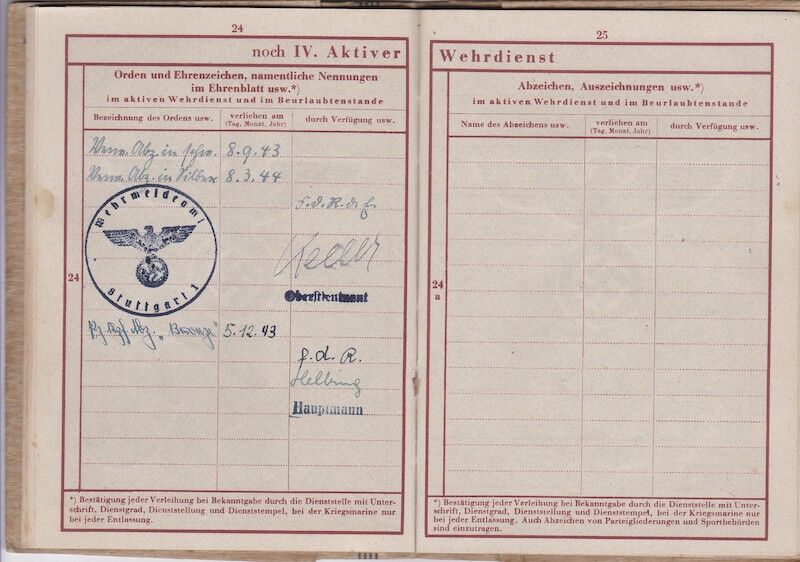 24
noch IV. Aktiver
Orden und Ehrenzeichen, namentliche Nennungen
im Ehrenblatt usw.*)
im aktiven Wehrdienst und im Beurlaubtenstande
Bezeichnung des Ordens usw.
verliehen am
(Tag, Monat, Jahr)
durch Verfügung usw.
Verw. Abz. in schw. 8.9.43
Verw. Abz. in Silber 8.3.44
F. d. R. d. E.
Wehrmeldeamt
Stuttgart 1
Keller
24
Oberstleutnant
Pz. Kpf. Abz. „Bronze" 5.12.43
f. d. R.
Helbing
Hauptmann
*) Bestätigung jeder Verleihung bei Bekanntgabe durch die Dienststelle mit Unter-
schrift, Dienstgrad, Dienststellung und Dienststempel, bei der Kriegsmarine nur
bei jeder Entlassung.
25
Wehrdienst
Abzeichen, Auszeichnungen usw.*)
im aktiven Wehrdienst und im Beurlaubtenstande
Name des Abzeichens usw.
verliehen am
(Tag, Monat, Jahr)
durch Verfügung usw.
24
a
*) Bestätigung jeder Verleihung bei Bekanntgabe durch die Dienststelle mit Unter-
schrift, Dienstgrad, Dienststellung und Dienststempel, bei der Kriegsmarine nur
bei jeder Entlassung. Auch Abzeichen von Parteigliederungen und Sportbehörden
sind einzutragen.